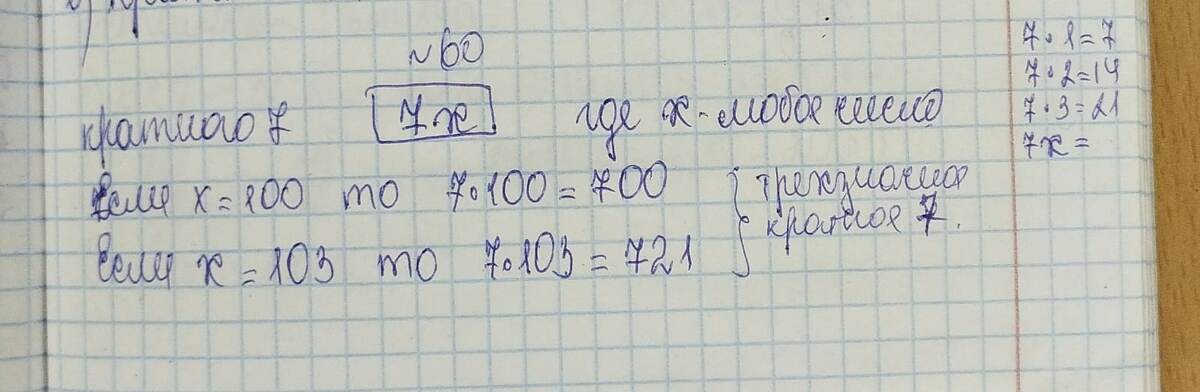 №60
кратного 7 7x где x - любое число
Если x = 100 то 7·100 = 700
Если x = 103 то 7·103 = 721
трехзначная
кратное 7.
7·1=7
7·2=14
7·3=21
7x=